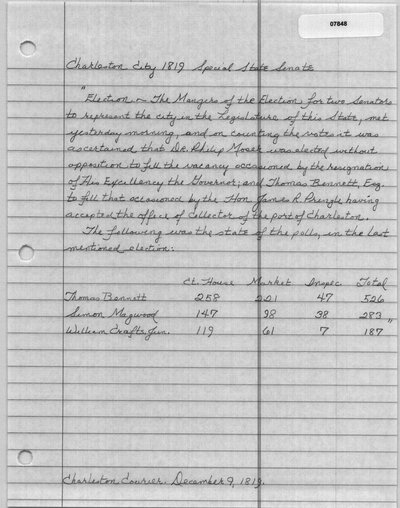 07848
Charleston City 1819 Special State Senate
"Election ~ The Mangers of the Election for two Senators
to represent the city in the Legislature of this State, met
yesterday morning, and on counting the votes it was
ascertained that Dr. Philip Moser was elected without
opposition to fill the vacancy occasioned by the resignation
of His Excellency the Governor; and Thomas Bennett, Esq.
to fill that occasioned by the Hon. James R. Pringle having
accepted the office of Collector of the port of Charleston.
The following was the state of the polls, in the last
mentioned election:
Ct. House Market Inspec Total
Thomas Bennett 258 221 47 526
Simon Magwood 147 98 38 283
William Crafts, Jun. 119 61 7 187"
Charleston Courier. December 9, 1819.